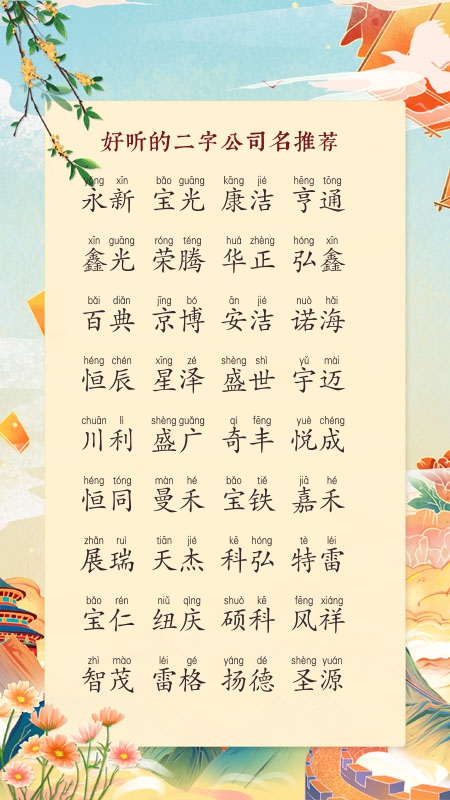 好听的二字公司名推荐
yǒng xīn bǎo guāng kāng jié hēng tōng
永新 宝光 康洁 亨通
xīn guāng róng téng huá zhèng hóng xīn
鑫光 荣腾 华正 弘鑫
bǎi diǎn jīng bó ān jié nuò hǎi
百典 京博 安洁 诺海
héng chén xīng zé shèng shì yǔ mài
恒辰 星泽 盛世 宇迈
chuān lì shèng guǎng qí fēng yuè chéng
川利 盛广 奇丰 悦成
héng tóng màn hé bǎo tiě jiā hé
恒同 曼禾 宝铁 嘉禾
zhǎn ruì tiān jié kē hóng tè léi
展瑞 天杰 科弘 特雷
bǎo rén niǔ qìng shuò kē fēng xiáng
宝仁 纽庆 硕科 风祥
zhì mào léi gé yáng dé shèng yuán
智茂 雷格 扬德 圣源